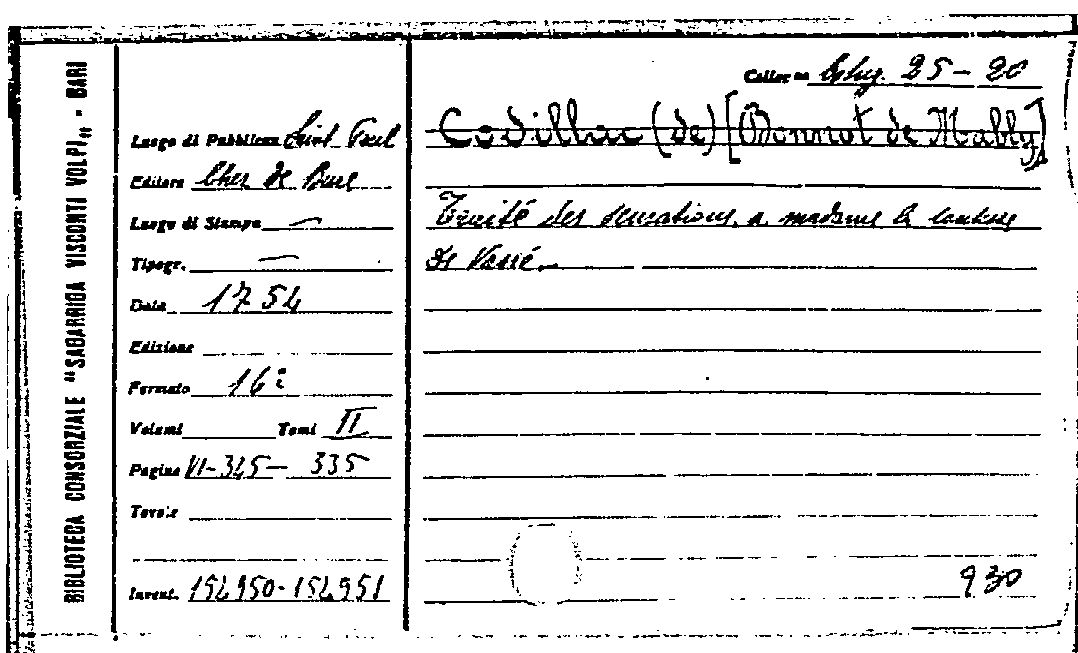 BIBLIOTECA CONSORZIALE "SAGARRIGA VISCONTI VOLPI" - BARI
Collez.ne 25-20
Luogo di Pubblicaz. Saint Paul
Codillac (de) [Bonnot de Mably]
Editore Chez de Bure
Luogo di Stampa —
Traité des sensations, a madame la
de Vassé.
Tipogr. —
Data 1754
Edizione
Formato 16º
Volumi Tomi II
Pagine VI-345- 335
Tavole
Invent. 152950-152951
930